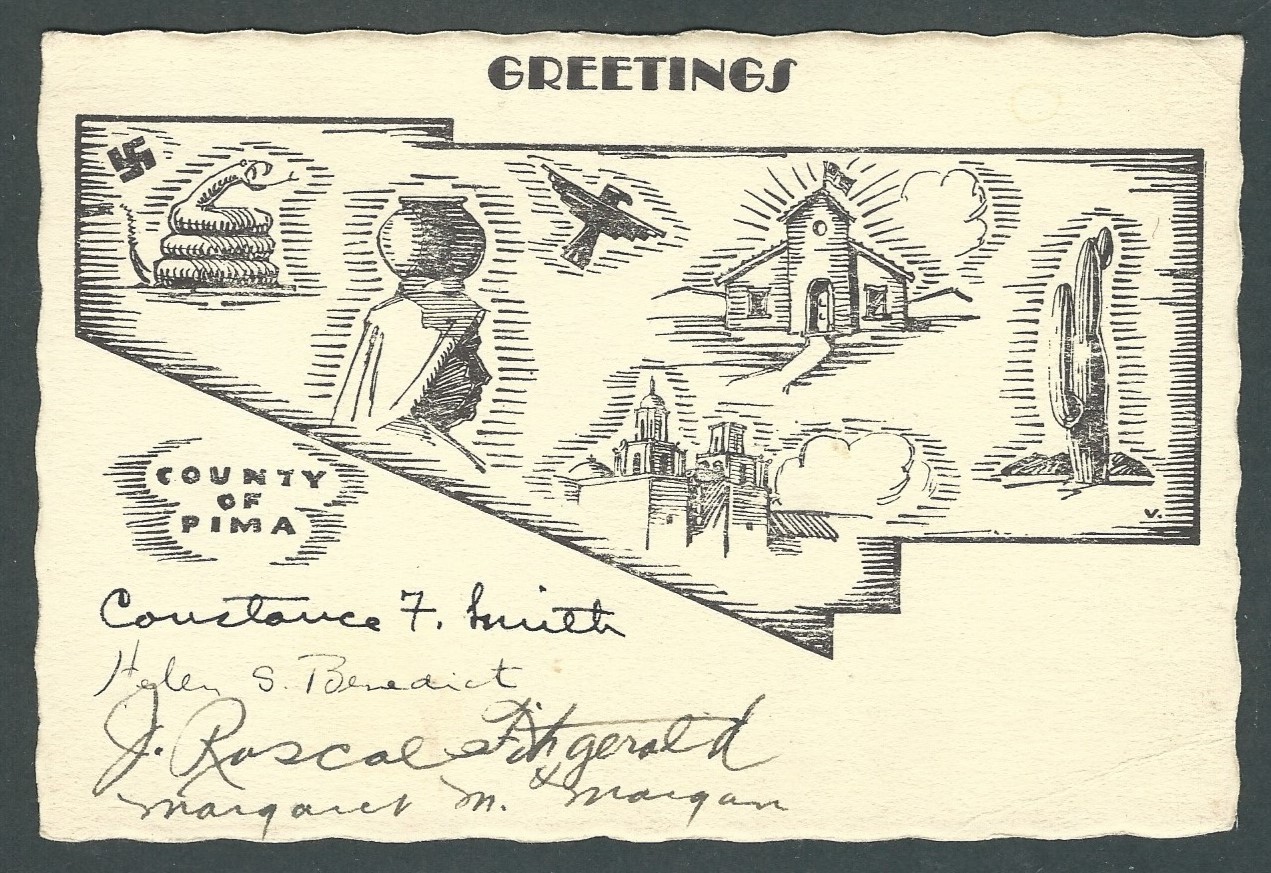 GREETINGS
COUNTY
OF
PIMA
V.
Constance F. Smith
Helen S. Benedict
J. Roscoe Fitzgerald
Margaret M. & Morgan